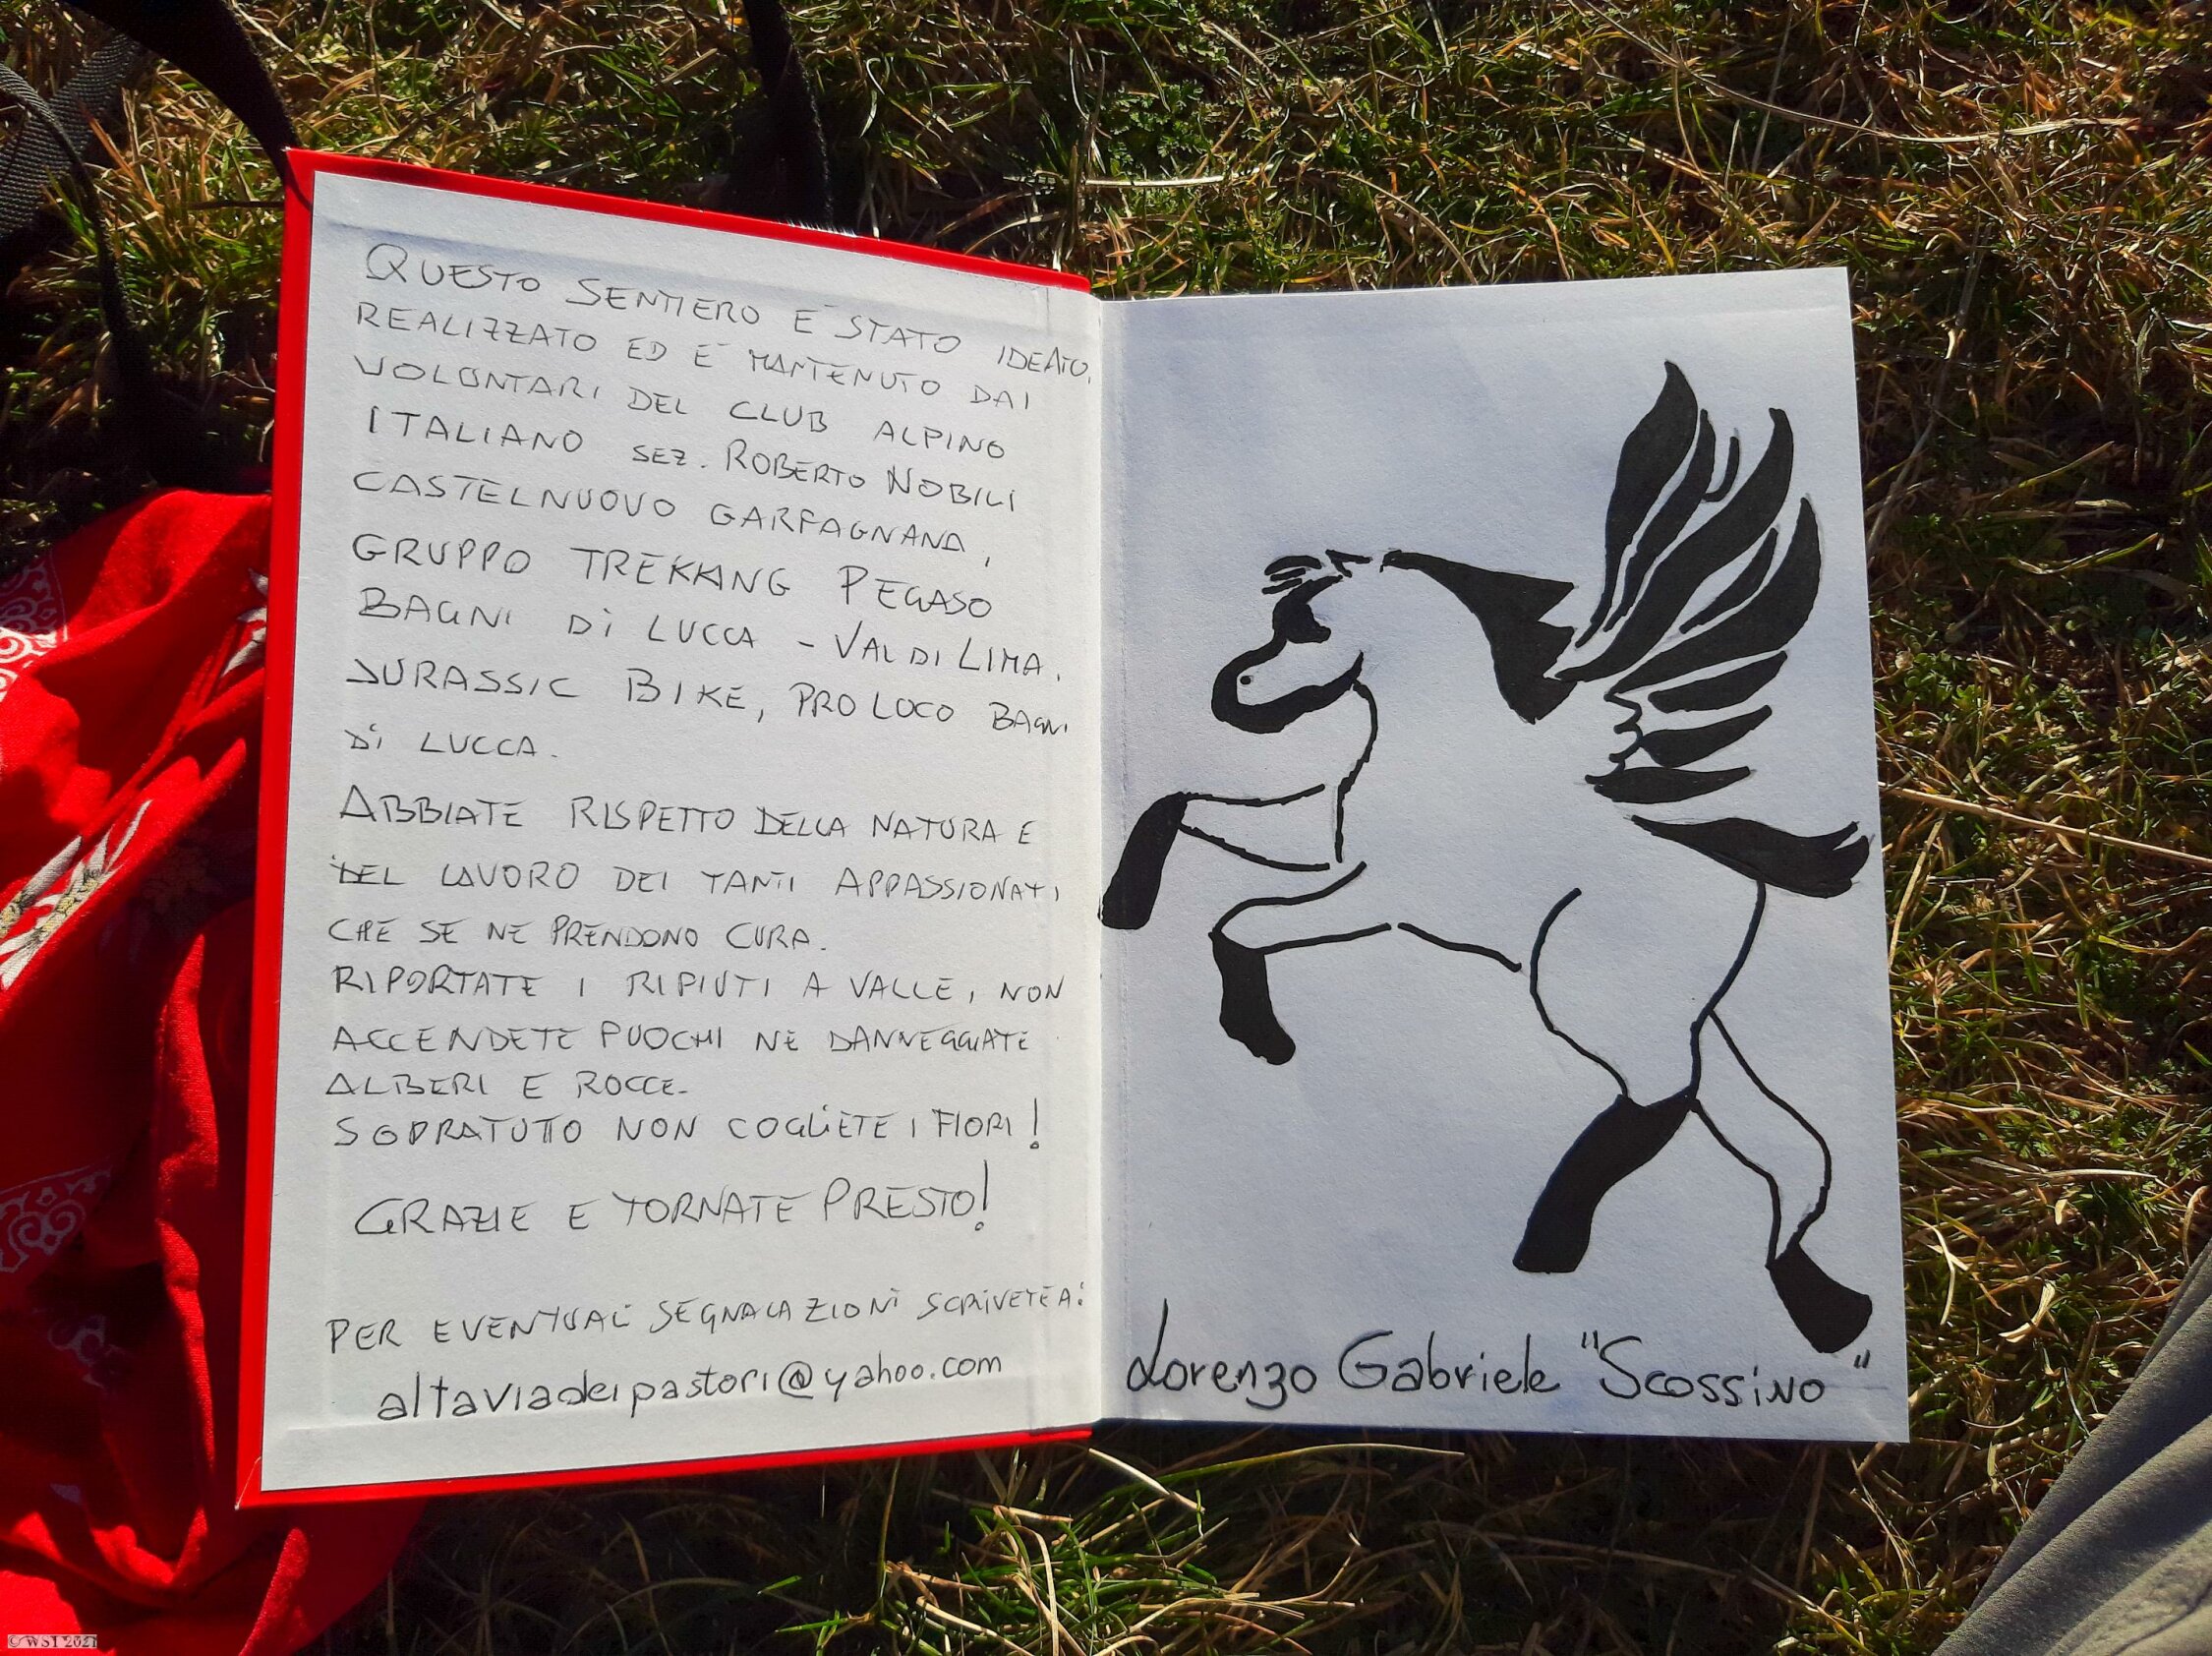 QUESTO SENTIERO E' STATO IDEATO,
REALIZZATO ED E' MANTENUTO DAI
VOLONTARI DEL CLUB ALPINO
ITALIANO SEZ. ROBERTO NOBILI
CASTELNUOVO GARFAGNANA,
GRUPPO TREKKING PEGASO
BAGNI Di LUCCA - VAL DI LIMA,
JURASSIC BIKE, PRO LOCO BAGNI
Di LUCCA.
ABBIATE RISPETTO DELLA NATURA E
DEL LAVORO DEI TANTI APPASSIONATI
CHE SE NE PRENDONO CURA.
RIPORTATE I RIFIUTI A VALLE, NON
ACCENDETE FUOCHI NE DANNEGGIATE
ALBERI E ROCCE.
SOPRATUTTO NON COGLiETE I FIORI!
GRAZIE E TORNATE PRESTO!
PER EVENTUALi SEGNALAZIONi SCRIVETE A:
altaviadeipastori@yahoo.com
Lorenzo Gabriele "Scossino"
© WSI 2021